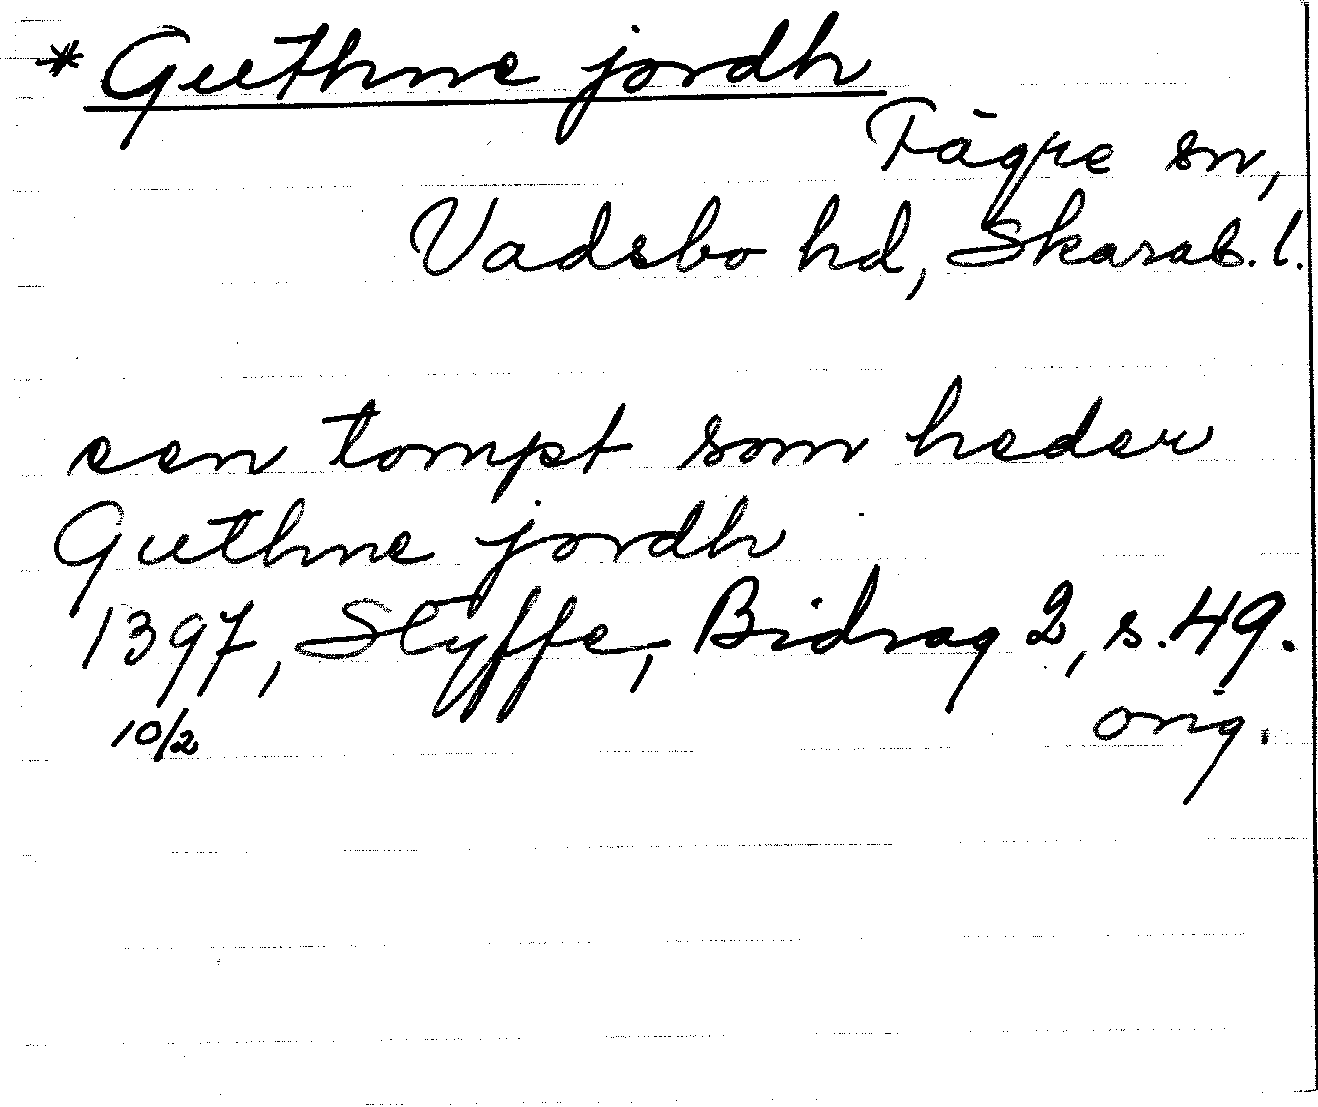 * Guthne jordh
Fägre sn,
Vadsbo hd, Skarab. l.
een tompt som heder
Guthne jordh
1397, Styffe, Bidrag 2, s. 49.
10/2 orig.